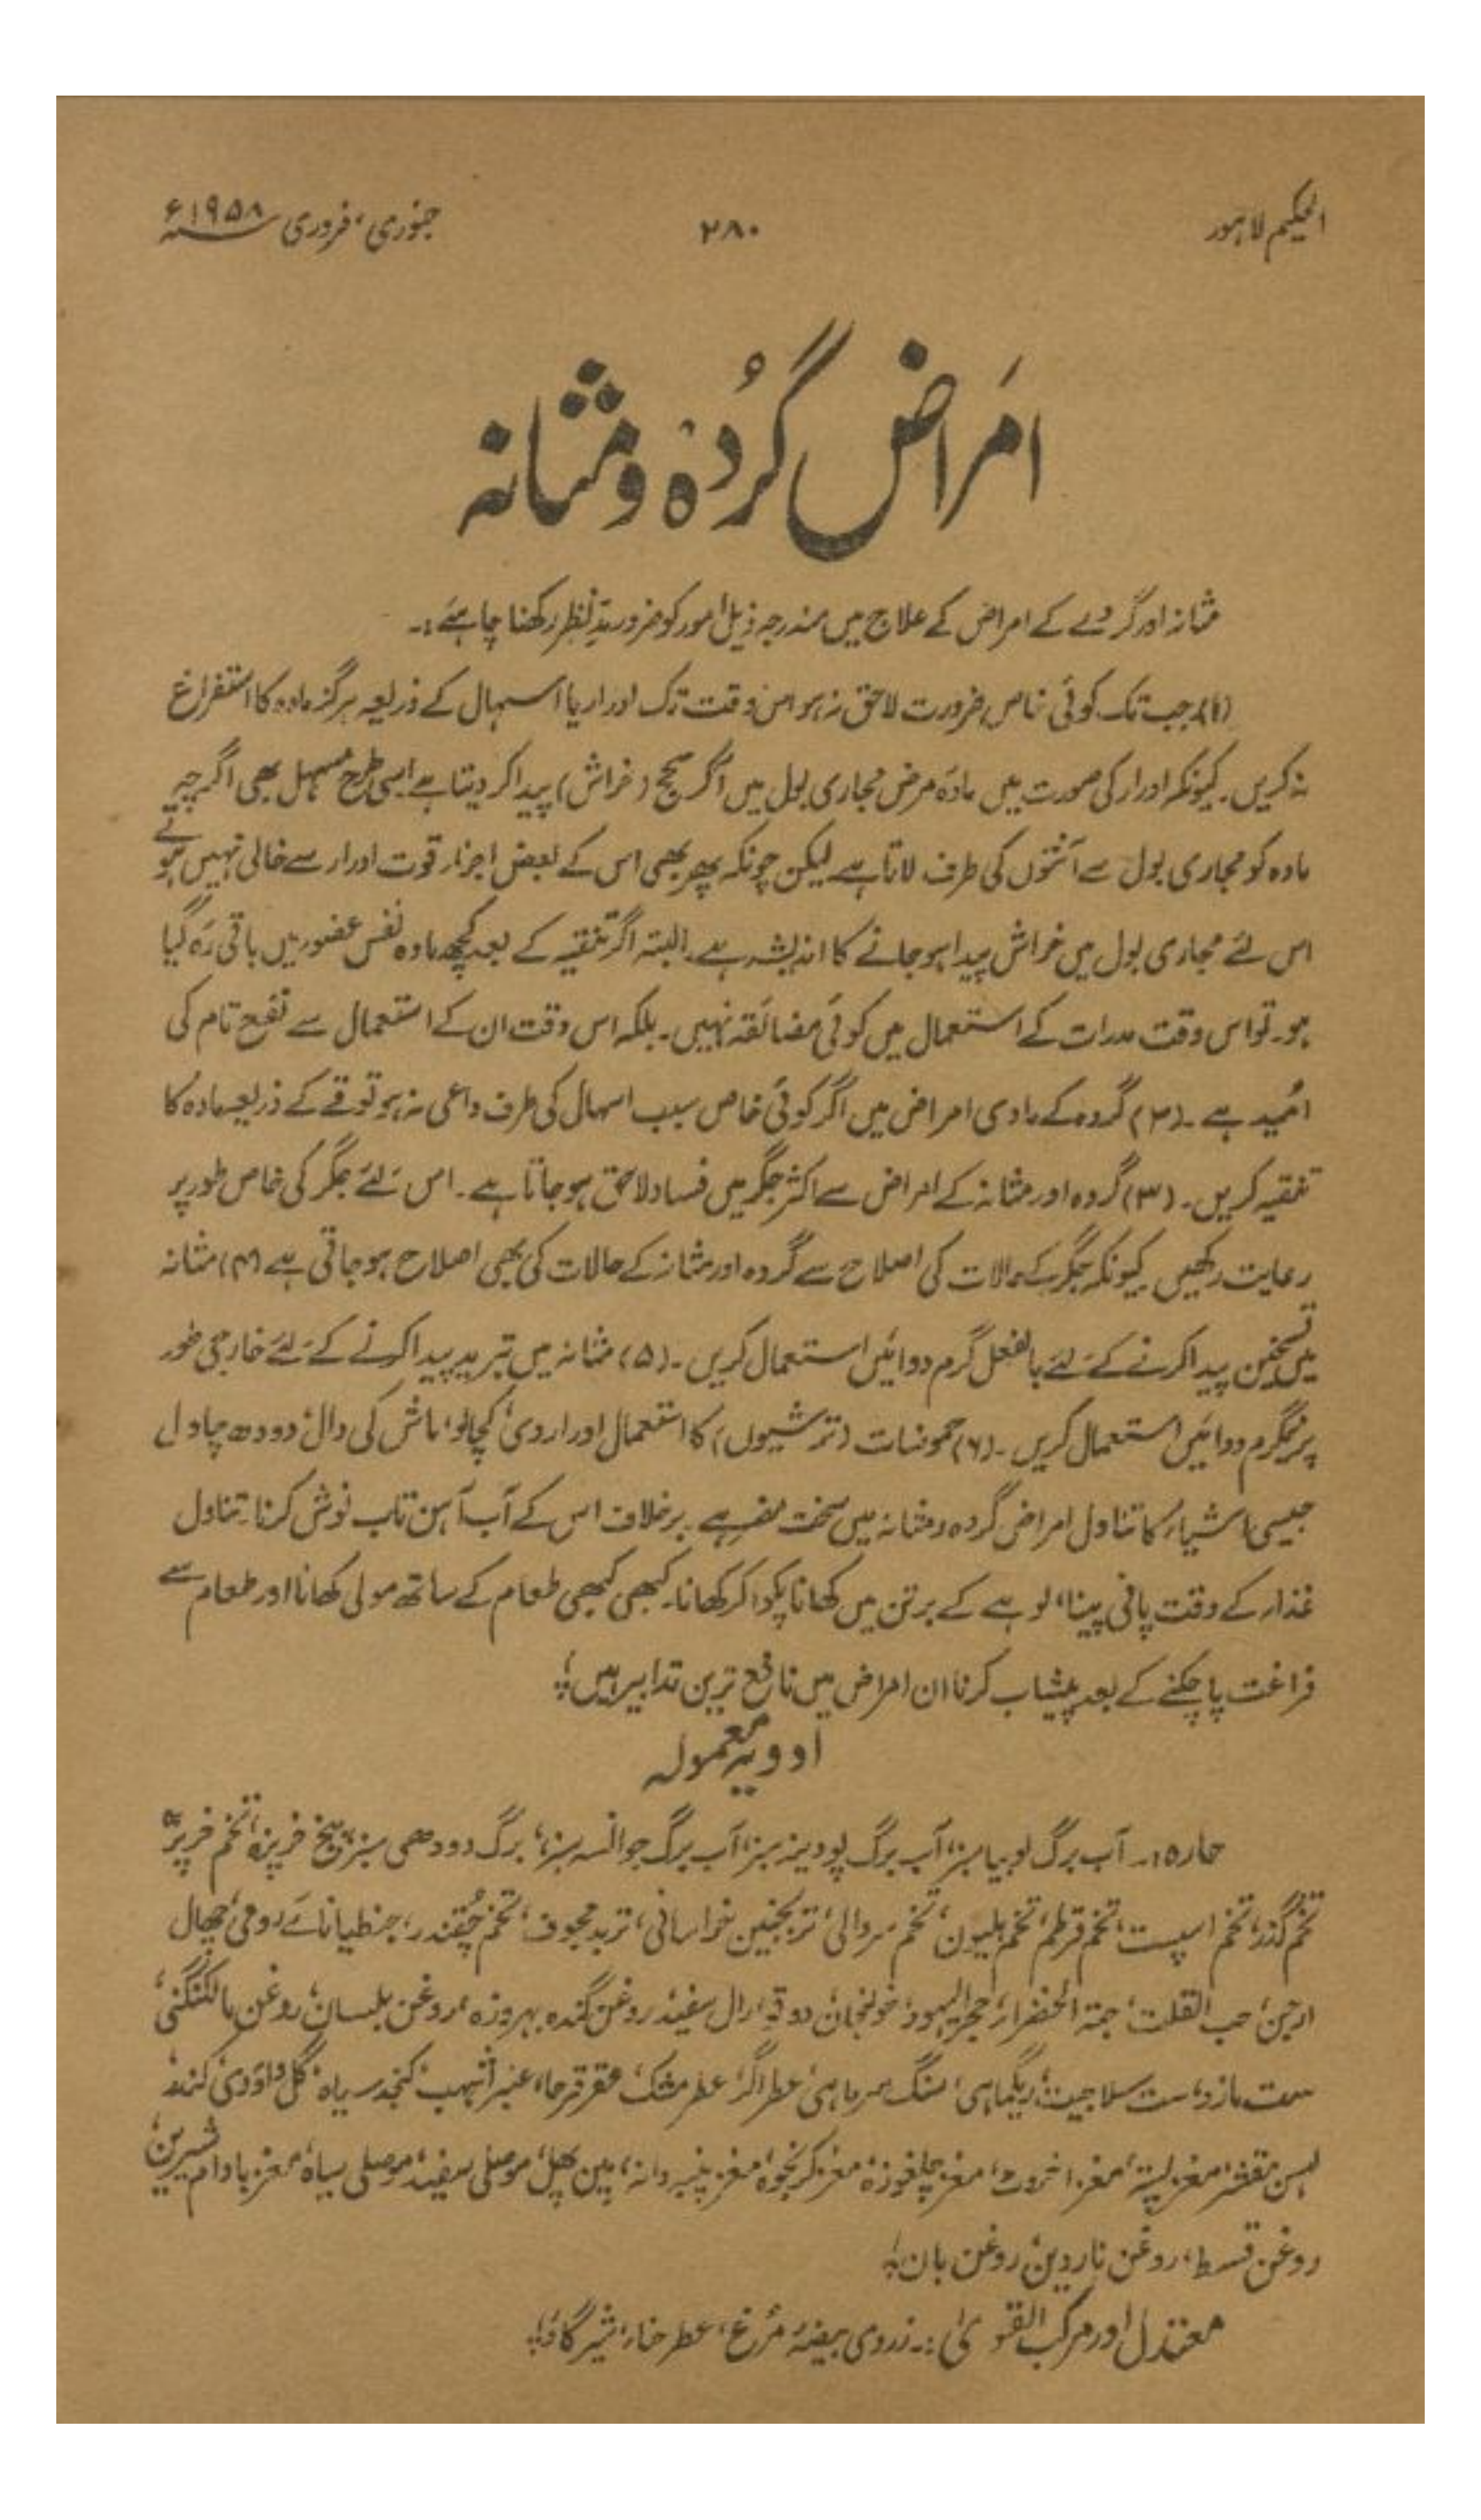 الحکیم لاہور
۲۸۰
جنوری، فروری ۱۹۵۸ء
امراض گردہ و مثانہ
مثانہ اور گردے کے امراض کے علاج میں مندرجہ ذیل امور کو ضرور مدِّنظر رکھنا چاہئے:۔
(۱) جب تک کوئی خاص ضرورت لاحق نہ ہو اس وقت تک ادرار یا اسہال کے ذریعہ ہرگز مادہ کا استفراغ
نہ کریں۔ کیونکہ ادرار کی صورت میں مادۂ مرض مجاری بول میں آکر سحج (خراش) پیدا کر دیتا ہے اسی طرح مسہل بھی اگرچہ
مادہ کو مجاری بول سے آنتوں کی طرف لاتا ہے لیکن چونکہ پھر بھی اس کے بعض اجزاء قوت ادرار سے خالی نہیں ہوتے
اس لئے مجاری بول میں خراش پیدا ہو جانے کا اندیشہ ہے۔ البتہ اگر تنقیہ کے بعد کچھ مادہ نفس عضو میں باقی رہ گیا
ہو۔ تو اس وقت مدرات کے استعمال میں کوئی مضائقہ نہیں۔ بلکہ اس وقت ان کے استعمال سے نفع تام کی
اُمید ہے۔ (۲) گردہ کے مادی امراض میں اگر کوئی خاص سبب اسہال کی طرف داعی نہ ہو تو قے کے ذریعہ مادہ کا
تنقیہ کریں۔ (۳) گردہ اور مثانہ کے امراض سے اکثر جگر میں فساد لاحق ہو جاتا ہے۔ اس لئے جگر کی خاص طور پر
رعایت رکھیں کیونکہ جگر کے حالات کی اصلاح سے گردہ اور مثانہ کے حالات کی بھی اصلاح ہو جاتی ہے (۴) مثانہ
میں تسخین پیدا کرنے کے لئے بالفعل گرم دوائیں استعمال کریں۔ (۵) مثانہ میں تبرید پیدا کرنے کے لئے خارجی طور
پر نیمگرم دوائیں استعمال کریں۔ (۶) حموضات (ترشیوں) کا استعمال اور اروی، کچالو، ماش کی دال، دودھ چاول
جیسی اشیاء کا تناول امراض گردہ و مثانہ میں سخت مضر ہے۔ برخلاف اس کے آب آہن تاب نوش کرنا۔ تناول
غذا کے وقت پانی پینا، لوہے کے برتن میں کھانا پکوا کر کھانا۔ کبھی کبھی طعام کے ساتھ مولی کھانا اور طعام سے
فراغت پا چکنے کے بعد پیشاب کرنا ان امراض میں نافع ترین تدابیر ہیں؛
ادویہ معمولہ
حارہ:۔ آب برگ لوبیا سبز، آب برگ پودینہ سبز، آب برگ جوانسہ سبز، برگ دودھی سبز، بیخ خرپزہ، تخم خرپزہ
تخم گذر، تخم اسپست، تخم قرطم، تخم ہلیون، تخم سروالی، ترنجبین خراسانی، تربد مجوف، تخم چقندر، جنطیانائے رومی، چھال
ارجن، حب القلت، حبۃ الخضراء، حجر الیہود، خولنجان، دوقو، رال سفید، روغن گندہ بہروزہ، روغن بلسان، روغن مالکنگنی،
ست مازو، ست سلاجیت، ریگماہی، سنگ سرماہی، عطر اگر، عطر مشک، عقرقرحا، عنبر اشہب، کنجد سیاہ، گل داؤدی، کندر
لہسن مقشر، مغز پستہ، مغز اخروٹ، مغز چلغوزہ، مغز کرنجوہ، مغز پنبہ دانہ، پین پھل، موصلی سفید، موصلی سیاہ، مغز بادام شیریں،
روغن قسط، روغن ناردین، روغن بان؛
معتدل اور مرکب القویٰ:۔ زردی بیضۂ مرغ، عطر حنا، شیر گاؤ؛